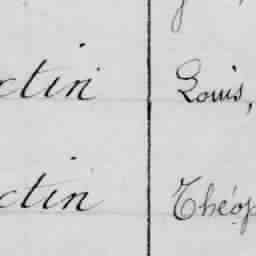 ctin Louis,
ctin Théop